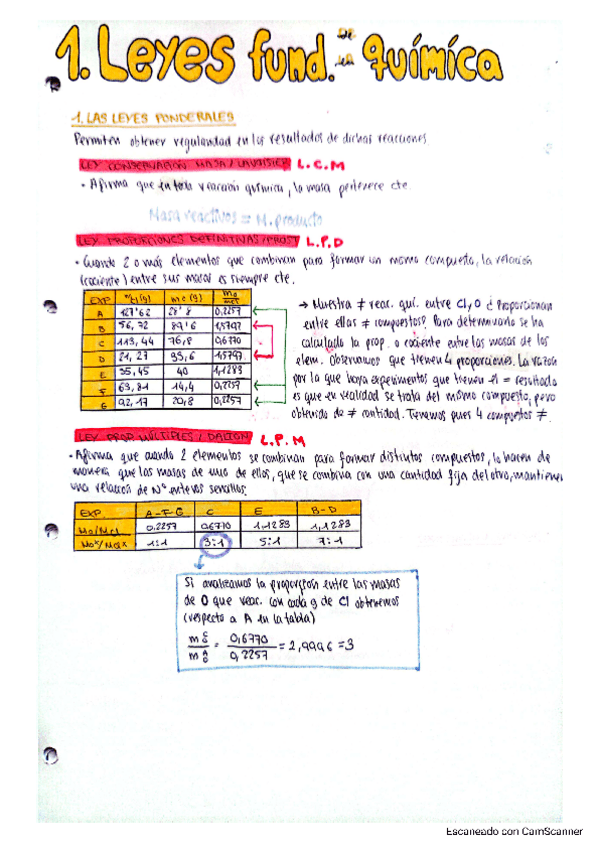 1. Leyes fund. DE LA química
1. LAS LEYES PONDERALES
Permiten obtener regularidad en los resultados de dichas reacciones
LEY CONSERVACIÓN MASA / LAVOISIER L.C.M
• Afirma que en toda reacción química, la masa pertenece cte.
Masa reactivos = M. producto
LEY PROPORCIONES DEFINITIVAS / PROUST L.P.D
• Cuando 2 o más elementos que combinan para formar un mismo compuesto, la relación
(cociente) entre sus masas es siempre cte.
EXP mCl (g) mO (g) mO/mCl
A 127'62 28'8 0,2257
B 56,72 89'6 1,5797
C 113,44 76,8 0,6770
D 21,27 33,6 1,5797
E 35,45 40 1,1283
F 63,81 14,4 0,2257
G 92,17 20,8 0,2257
→ Muestra ≠ reac. quí. entre Cl, O ¿Proporcionan
entre ellas ≠ compuestos? Para determinarlo se ha
calculado la prop. o cociente entre las masas de los
elem. Observamos que tienen 4 proporciones. La razón
por la que haya experimentos que tienen el = resultado
es que en realidad se trata del mismo compuesto, pero
obtenido de ≠ cantidad. Tenemos pues 4 compuestos ≠.
LEY PROP. MÚLTIPLES / DALTON L.P.M
• Afirma que cuando 2 elementos se combinan para formar distintos compuestos, lo hacen de
manera que las masas de uno de ellos, que se combina con una cantidad fija del otro, mantienen
una relación de Nº enteros sencillos.
EXP. A-F-G C E B-D
MO/MCl 0.2257 0,6770 1,1283 1,1283
1:1 3:1 5:1 7:1
Si analizamos la proporción entre las masas
de O que reac. con cada g de Cl obtenemos
(respecto a A en la tabla)
m C O / m A O = 0,6770 / 0,2257 = 2,9996 = 3
Escaneado con CamScanner